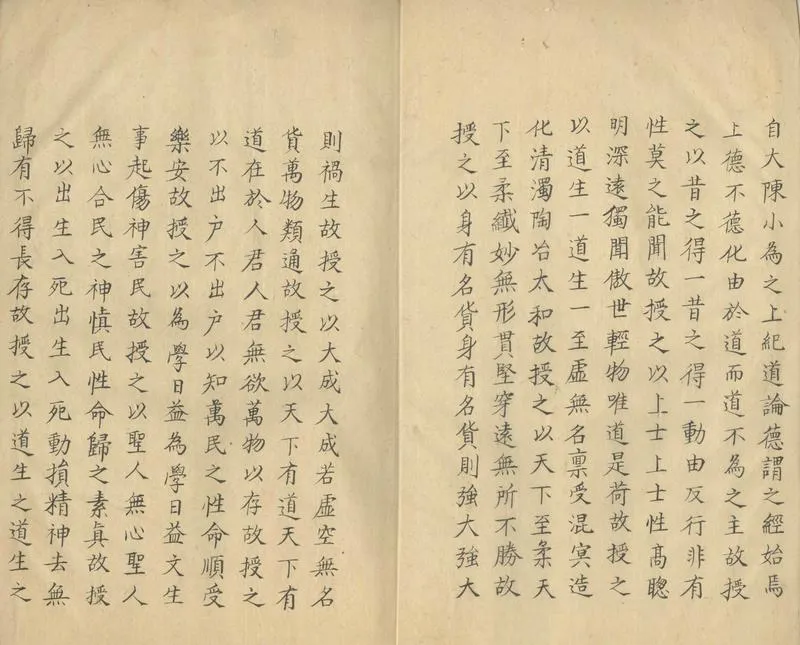 自大陳小為之上紀道論德謂之經始焉
上德不德化由於道而道不為之主故授
之以昔之得一昔之得一動由反行非有
性莫之能聞故授之以上士上士性高聰
明深遠獨聞傲世輕物唯道是荷故授之
以道生一道生一至虛無名稟受混冥造
化清濁陶冶太和故授之以天下至柔天
下至柔纖妙無形貫堅穿遠無所不勝故
授之以身有名貨身有名貨則強大強大
則禍生故授之以大成大成若虛空無名
貨萬物類通故授之以天下有道天下有
道在於人君人君無欲萬物以存故授之
以不出户不出户以知萬民之性命順受
樂安故授之以為學日益為學日益文生
事起傷神害民故授之以聖人無心聖人
無心合民之神慎民性命歸之素真故授
之以出生入死出生入死動損精神去無
歸有不得長存故授之以道生之道生之